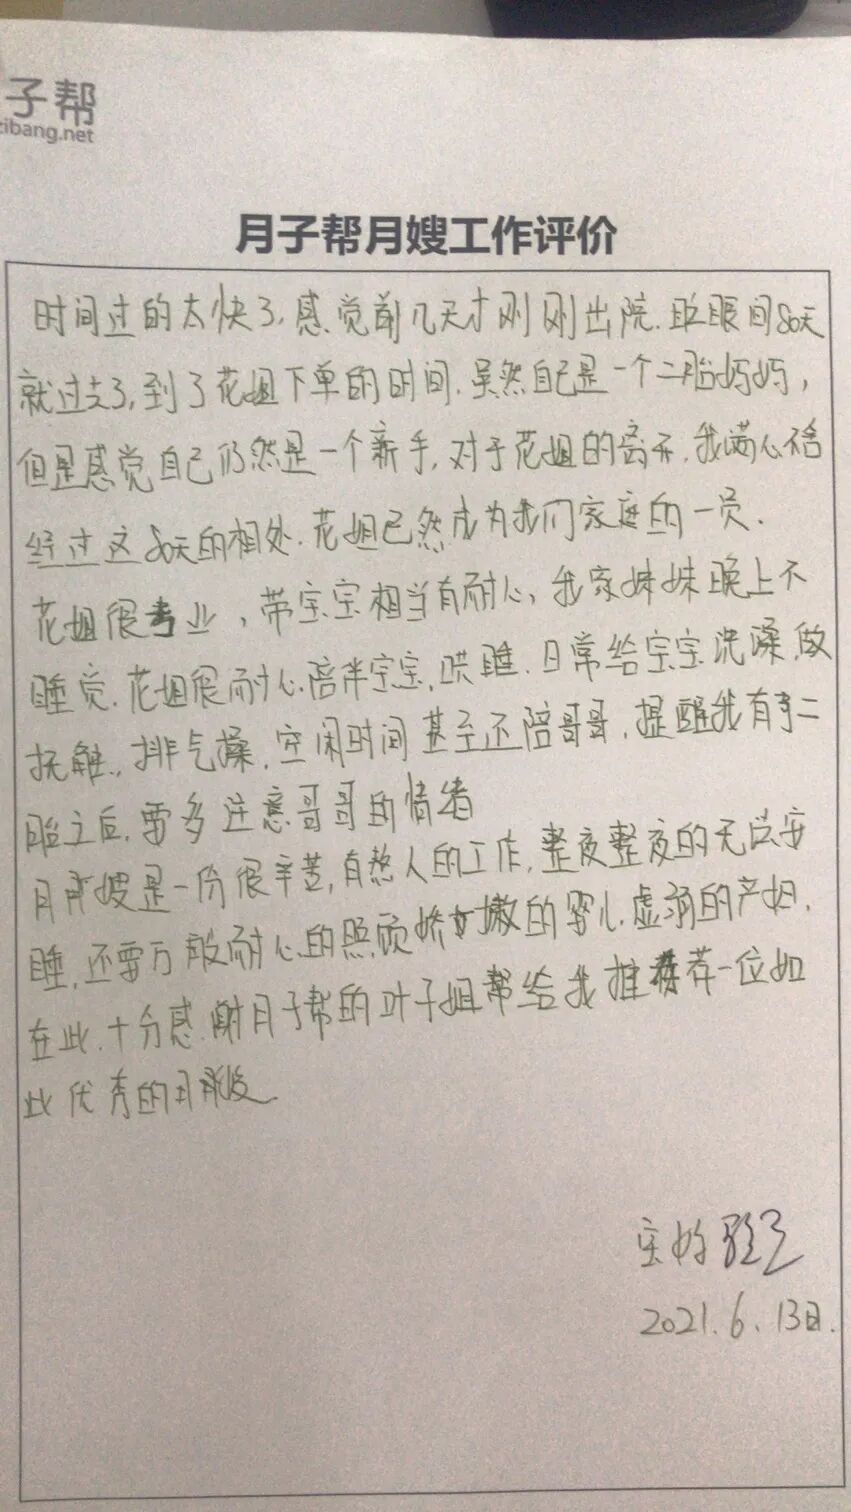 子帮
zibang.net
月子帮月嫂工作评价
时间过的太快了,感觉前几天才刚刚出院.眨眼间80天
就过去了,到了花姐下单的时间.虽然自己是一个二胎妈妈,
但是感觉自己仍然是一个新手,对于花姐的离开,我满心不舍
经过这80天的相处.花姐已然成为我们家庭的一员.
花姐很专业,带宝宝相当有耐心,我家妹妹晚上不
睡觉.花姐很耐心陪伴宝宝,哄睡.日常给宝宝洗澡,做
抚触,排气操,空闲时间甚至还陪哥哥,提醒我有了二
胎之后,要多注意哥哥的情绪
月嫂是一份很辛苦,自熬人的工作,整夜整夜的无法安
睡,还要万般耐心的照顾娇嫩的婴儿,虚弱的产妇.
在此,十分感谢月子帮的叶子姐帮给我推荐一位如
此优秀的月嫂
宝妈
2021.6.13日.